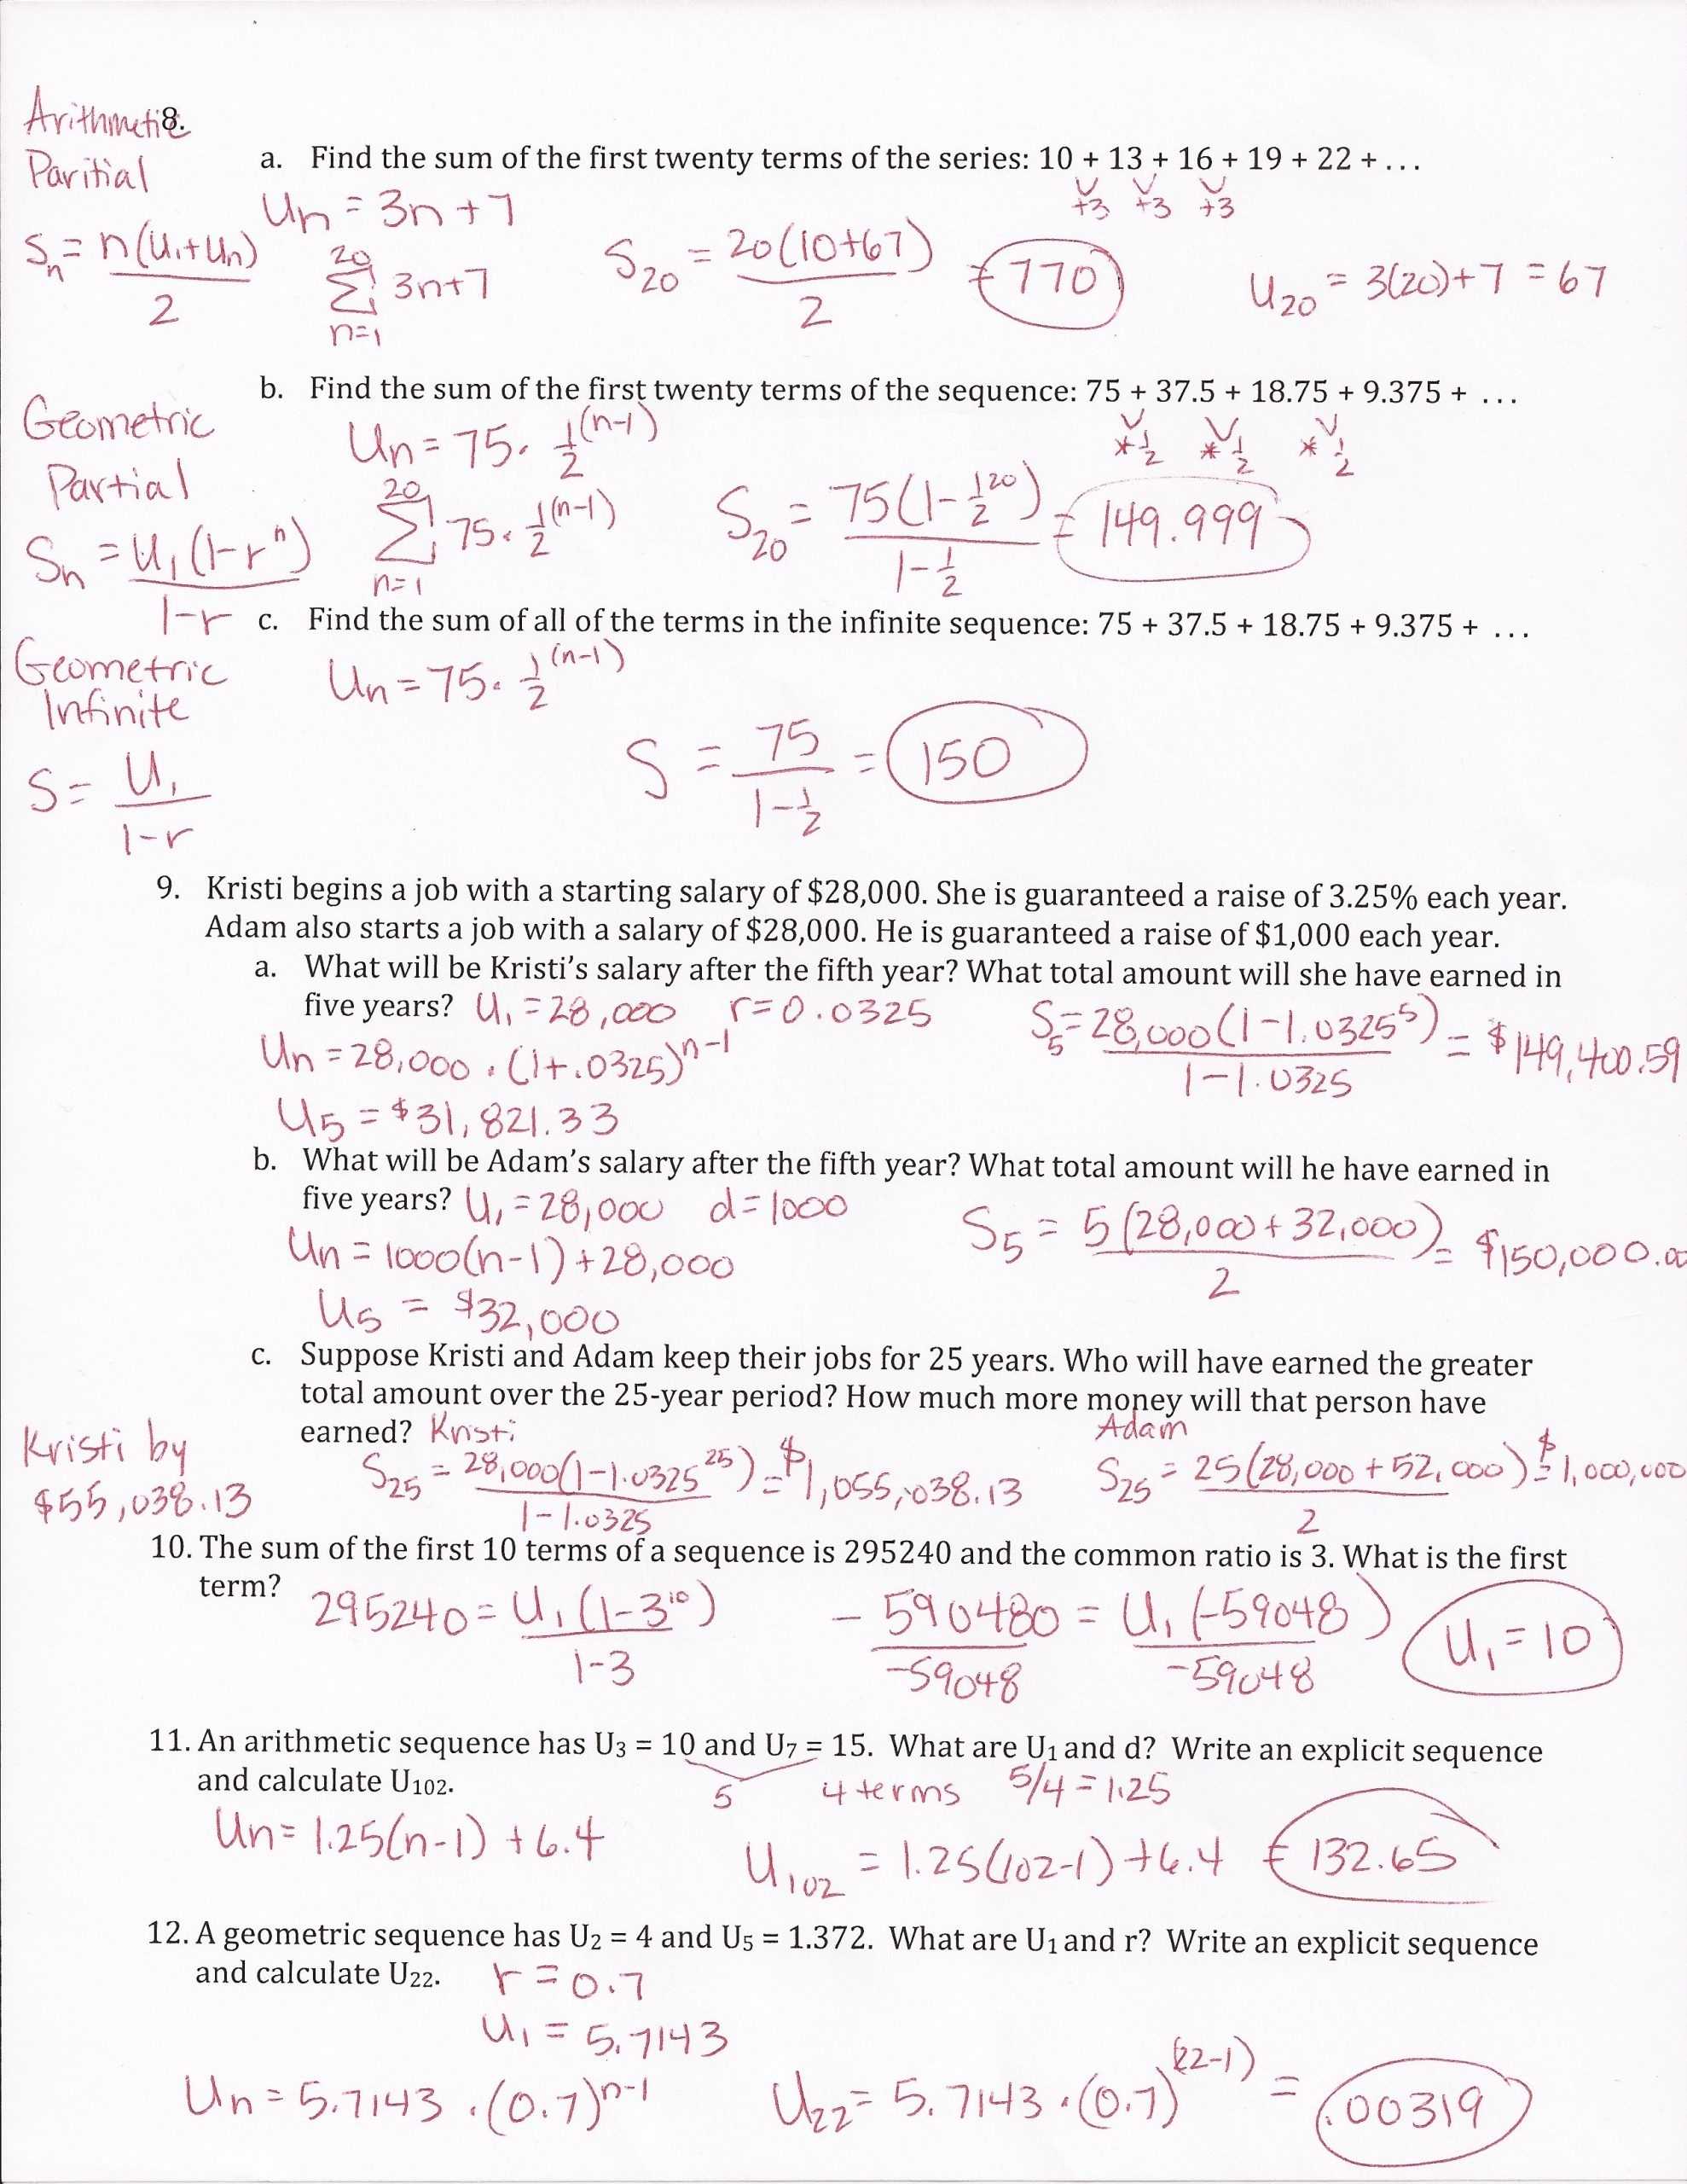 Arithmetic 8.
Paritial
a. Find the sum of the first twenty terms of the series: 10 + 13 + 16 + 19 + 22 + ...
+3 +3 +3
Un = 3n + 7
Sn = n(U1+Un) / 2
20 Σ n=1 3n+7
S20 = 20(10+67) / 2 = 770
U20 = 3(20)+7 = 67
b. Find the sum of the first twenty terms of the sequence: 75 + 37.5 + 18.75 + 9.375 + ...
*1/2 *1/2 *1/2
Geometric
Partial
Un = 75 · 1/2^(n-1)
Sn = U1(1-r^n) / 1-r
20 Σ n=1 75 · 1/2^(n-1)
S20 = 75(1-1/2^20) / 1-1/2 = 149.999
c. Find the sum of all of the terms in the infinite sequence: 75 + 37.5 + 18.75 + 9.375 + ...
Geometric
Infinite
Un = 75 · 1/2^(n-1)
S = U1 / 1-r
S = 75 / 1-1/2 = 150
9. Kristi begins a job with a starting salary of $28,000. She is guaranteed a raise of 3.25% each year.
Adam also starts a job with a salary of $28,000. He is guaranteed a raise of $1,000 each year.
a. What will be Kristi's salary after the fifth year? What total amount will she have earned in
five years? U1 = 28,000 r = 0.0325
S5 = 28,000(1-1.0325^5) / 1-1.0325 = $149,400.59
Un = 28,000 · (1+.0325)^n-1
U5 = $31,821.33
b. What will be Adam's salary after the fifth year? What total amount will he have earned in
five years? U1 = 28,000 d = 1000
S5 = 5(28,000+32,000) / 2 = $150,000.00
Un = 1000(n-1)+28,000
U5 = $32,000
c. Suppose Kristi and Adam keep their jobs for 25 years. Who will have earned the greater
total amount over the 25-year period? How much more money will that person have
earned? Kristi Adam
Kristi by
$55,038.13
S25 = 28,000(1-1.0325^25) / 1-1.0325 = $1,055,038.13
S25 = 25(28,000+52,000) / 2 = $1,000,000
10. The sum of the first 10 terms of a sequence is 295240 and the common ratio is 3. What is the first
term?
295240 = U1(1-3^10) / 1-3
-590480 / -59048 = U1(-59048) / -59048
U1 = 10
11. An arithmetic sequence has U3 = 10 and U7 = 15. What are U1 and d? Write an explicit sequence
and calculate U102. 5 4 terms 5/4 = 1.25
Un = 1.25(n-1) + 6.4
U102 = 1.25(102-1)+6.4 = 132.65
12. A geometric sequence has U2 = 4 and U5 = 1.372. What are U1 and r? Write an explicit sequence
and calculate U22. r = 0.7
U1 = 5.7143
Un = 5.7143 · (0.7)^n-1
U22 = 5.7143 · (0.7)^(22-1) = .00319